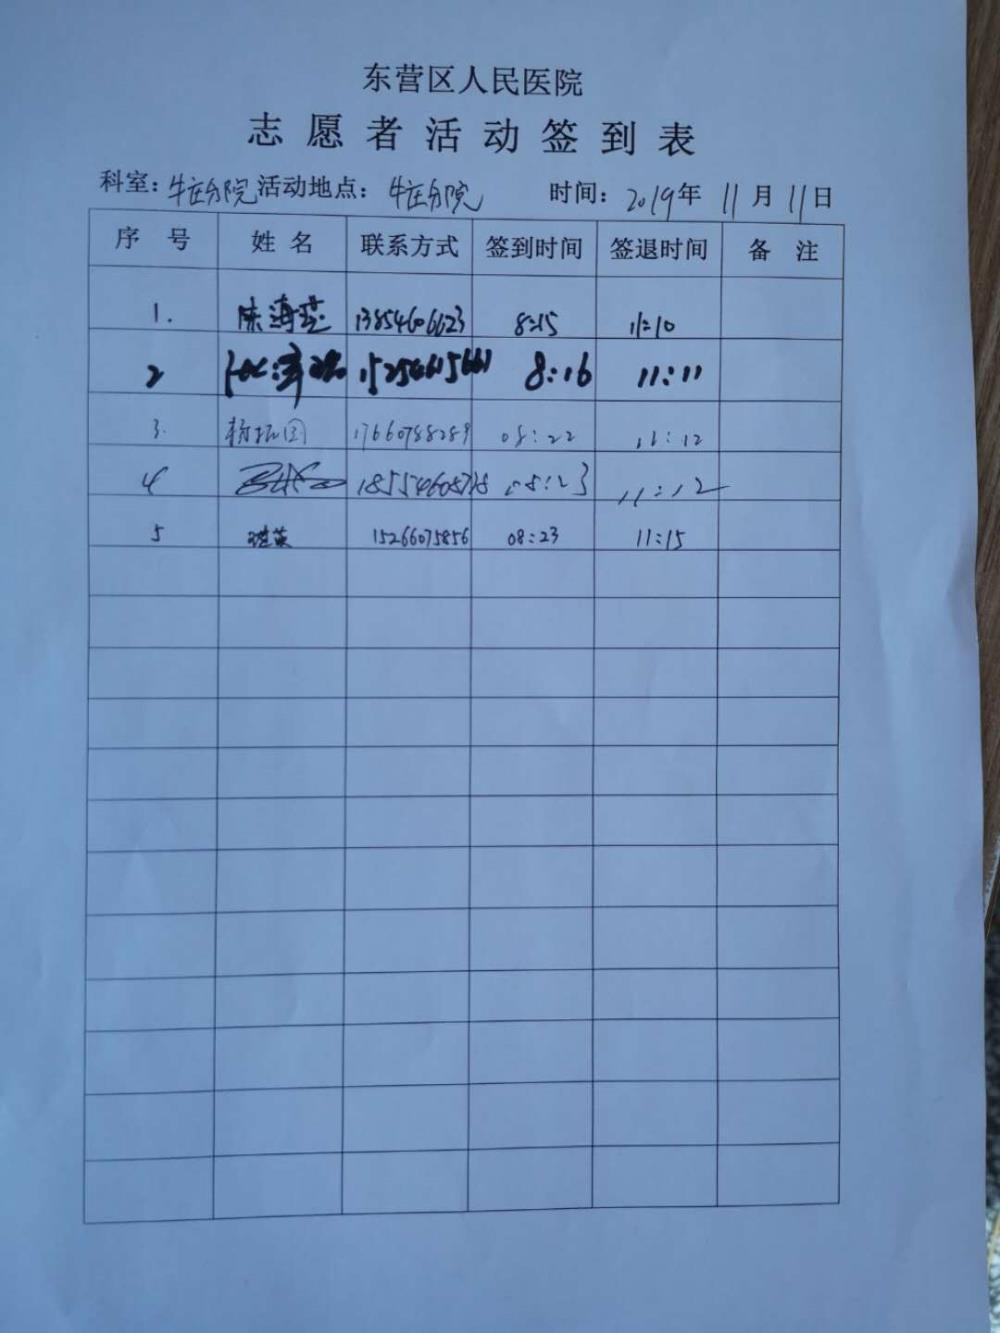 东营区人民医院
志愿者活动签到表
科室：牛庄分院 活动地点：牛庄分院 时间：2019年11月11日
序号 姓名 联系方式 签到时间 签退时间 备注
1. 陈海莲 13854606623 8:15 11:10
2 15254615661 8:16 11:11
3. 杨振国 17660788289 08:22 11:12
4 08:23 11:12
5 15266075856 08:23 11:15